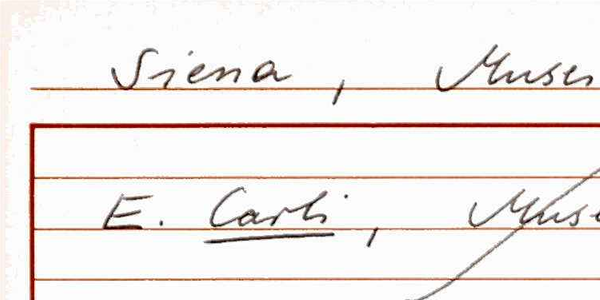 Siena, Muse
E. Carli, Muse